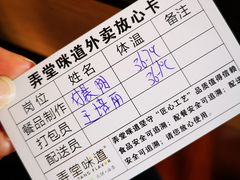 弄堂味道外卖放心卡
岗位 姓名 体温 备注
餐品制作 36.7℃
打包员 王培丽 36.5℃
配送员
弄堂味道
弄堂味道坚守“匠心工艺”品质值得信赖
食品安全可追溯；配餐安全可追溯；配送
安全可追溯；请您放心使用。